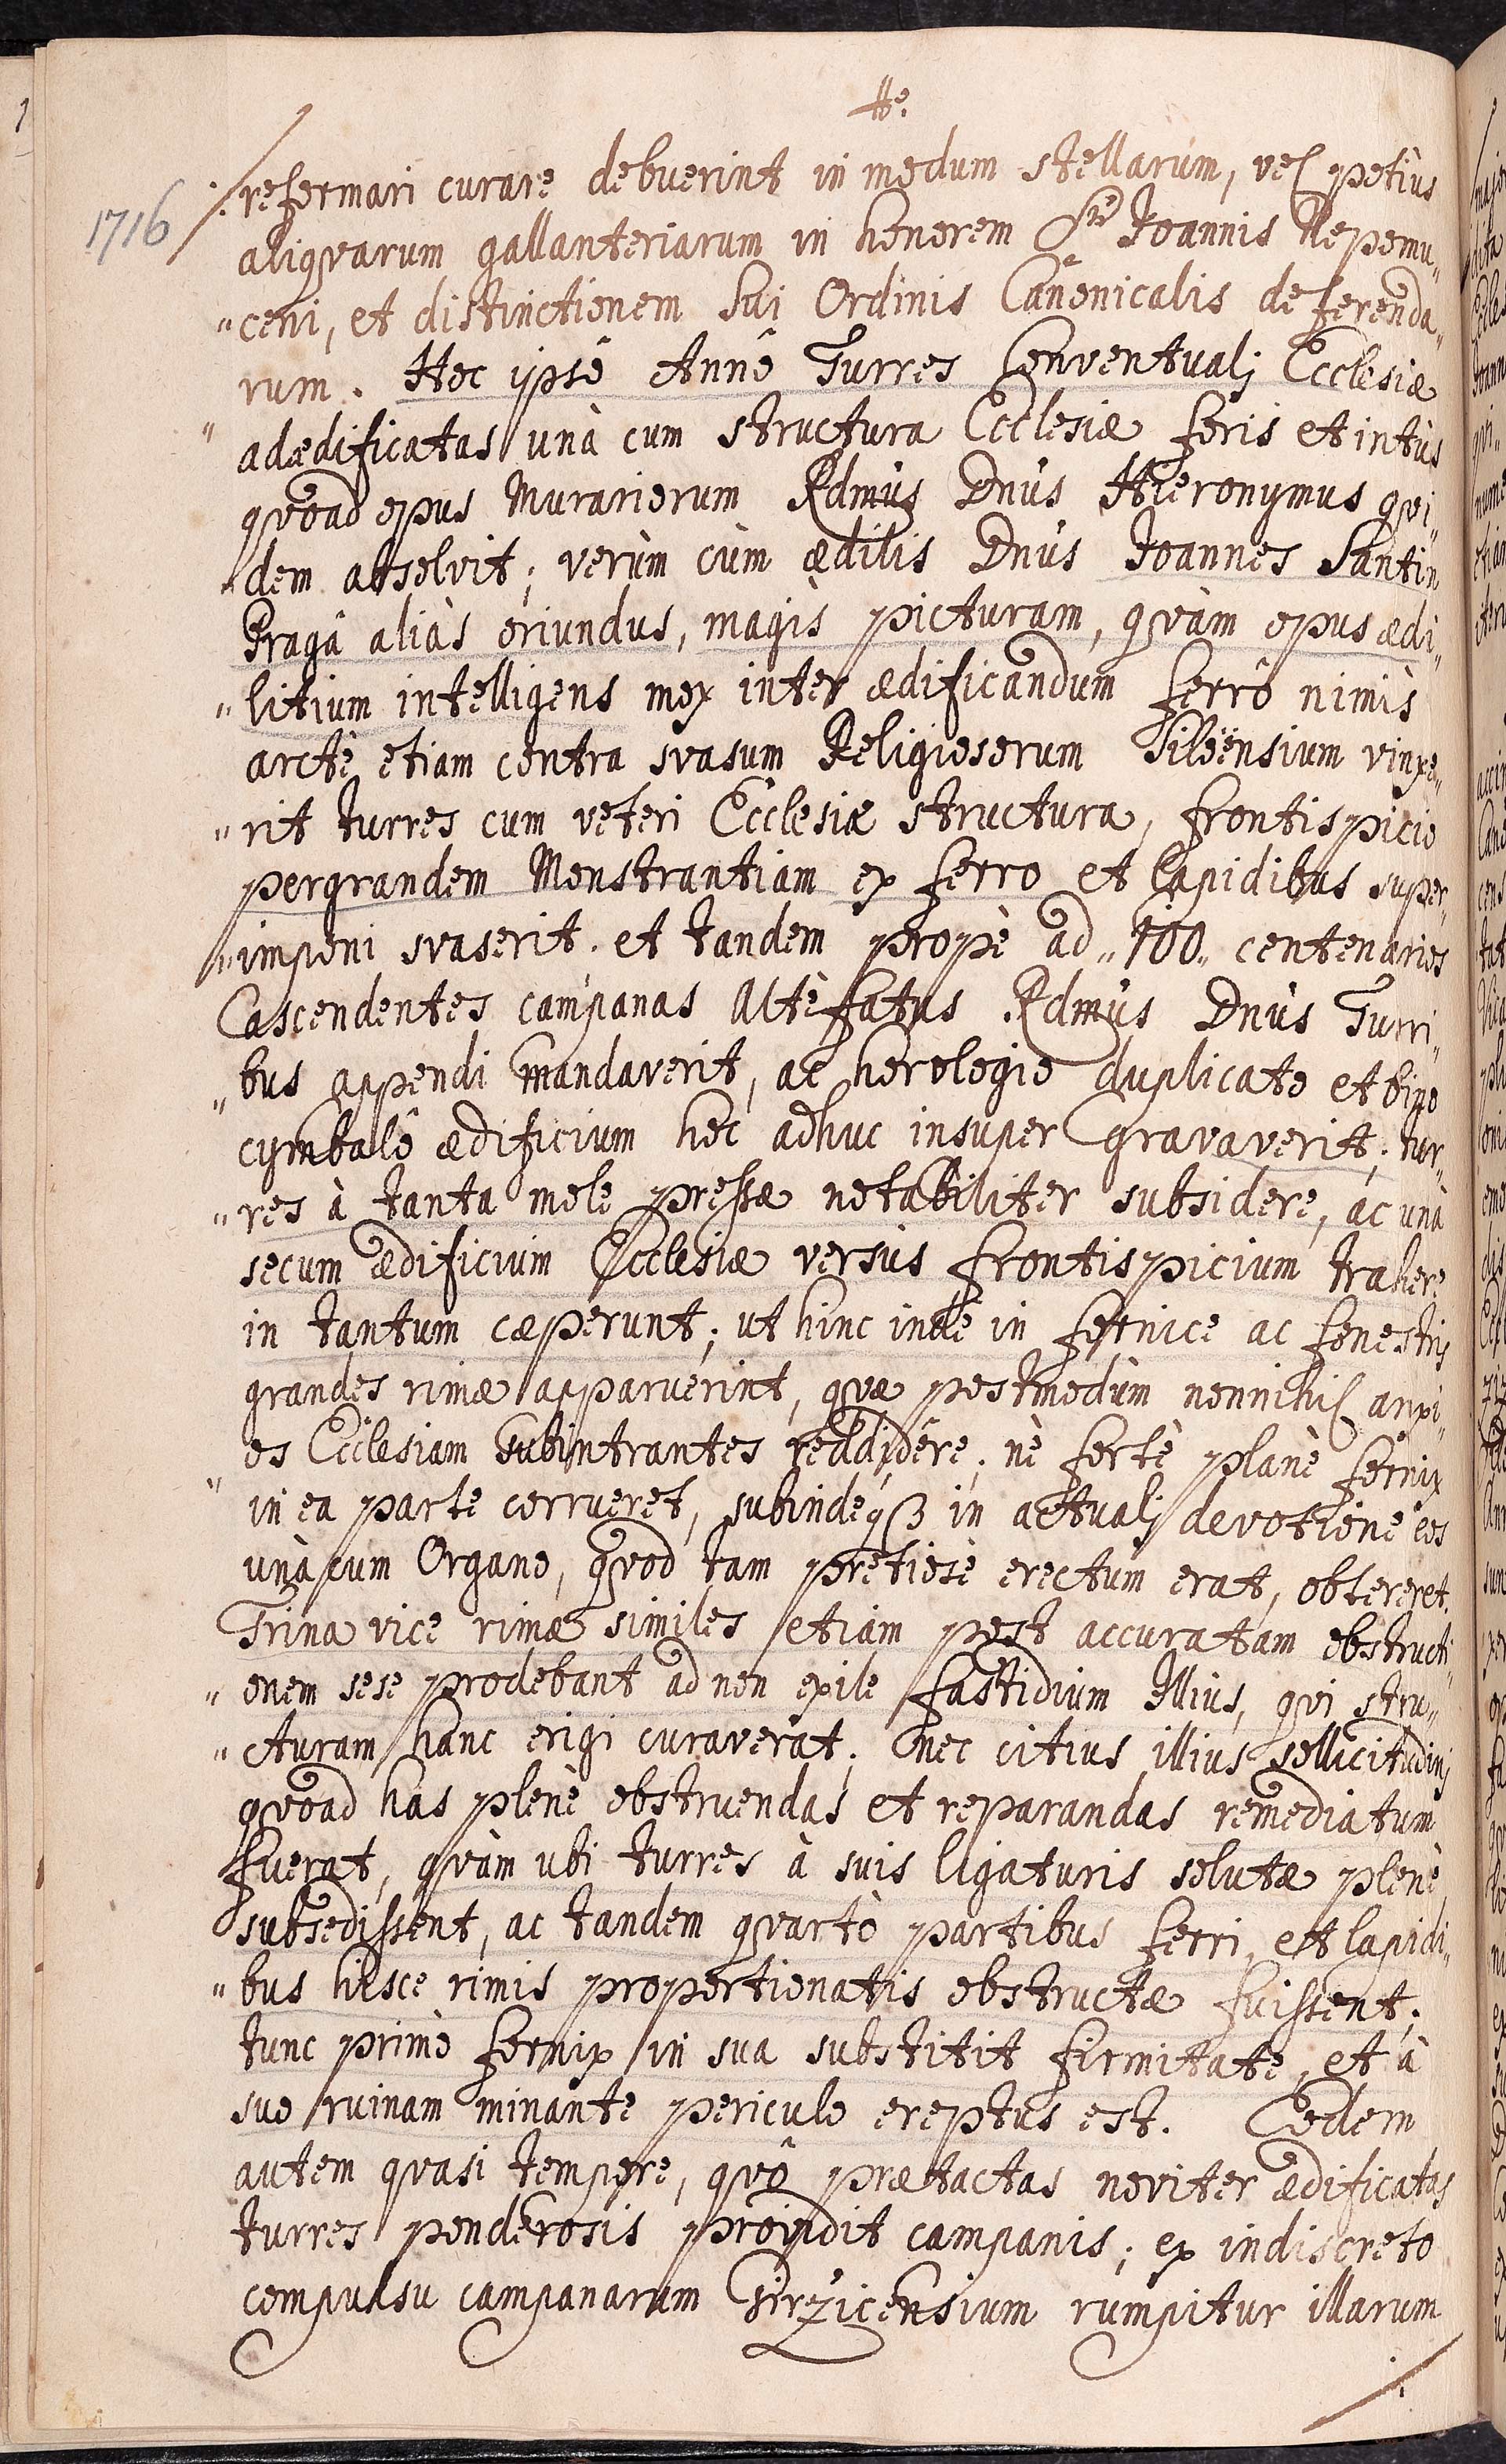 1716
reformari curare debuerint in modum stellarum, vel potiùs
aliqvarum gallanteriarum in honorem Sti Joannis Nepomu„
„ceni, et distinctionem sui Ordinis Canonicalis deferenda„
rum. Hoc ipsô Annô Turres Conventualj Ecclesiæ
adædificatas unà cum structura Ecclesiæ foris et intùs
qvoad opus Murariorum Rdmus Dnus Hieronymus qvi„
„dem absolvit; verùm cùm ædilis Dnus Joannes Santin
Pragâ aliàs oriundus, magìs picturam, qvàm opus ædi„
„litium intelligens mox inter ædificandum ferrô nimìs
arctè etiam contra svasum Religiosorum Siloënsium vinxe„
„rit turres cum veteri Ecclesiæ structura, frontispicio
pergrandem Monstrantiam ex ferro et lapidibus super„
„imponi svaserit. et tandem propè ad „100„ centenarios
ascendentes campanas Altèfatus Rdmus Dnus Turri„
„bus appendi mandaverit, ac horologio duplicato et bino
cymbalô ædificium hoc adhuc insuper gravaverit; tur„
„res à tanta mole pressæ notabiliter subsidere, ac unà
secum ædificium Ecclesiæ versùs frontispicium trahere
in tantum cæperunt; ut hinc inde in fornice ac fenestris
grandes rimæ apparuerint, qvæ postmodùm nonnihil anxi„
„os Ecclesiam subintrantes reddidêre; nè fortè planè fornix
in ea parte corrueret, subindeqȝ in actualj devotione eos
unà cum Organo, qvod tam pretiosè erectum erat, obtereret.
Trina vice rimæ similes etiam post accuratam obstructi„
„onem sese prodebant ad non exile fastidium Illius, qvi stru„
„cturam hanc erigi curaverat. nec citius illius sollicitudinj
qvoad has plenè obstruendas et reparandas remediatum
fuerat, qvàm ubi turres à suis ligaturis solutæ plenè
subsedissent, ac tandem qvartò partibus ferri et lapidi„
„bus hisce rimis proportionatis obstructæ fuissent;
tunc primò fornix in sua substitit firmitate, et à
suo ruinam minante periculo ereptus est. Eodem
autem qvasi tempore, qvô prætactas noviter ædificatas
turres ponderosis providit campanis; ex indiscreto
compulsu campanarum Girzicensium rumpitur illarum